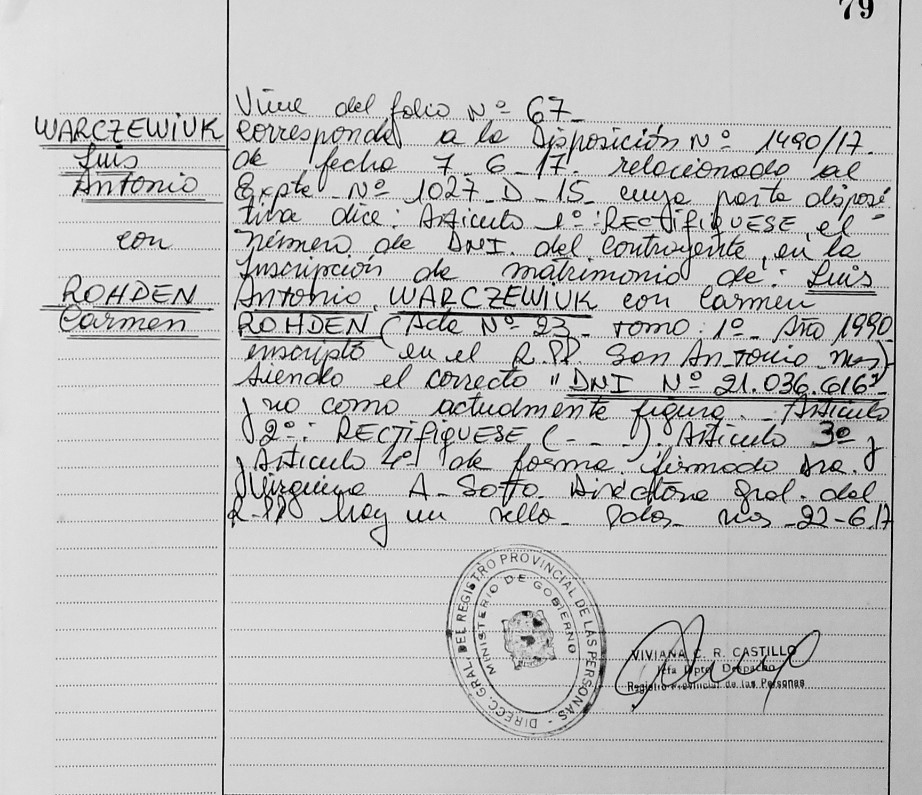 79
WARCZEWIUK
Luis
Antonio
con
ROHDEN
Carmen
Viene del folio Nº 67-
corresponde a la Disposición Nº 1490/17-
de fecha 7-6-17- relacionado al
Expte-Nº 1027-D-15- cuya parte disposi-
tiva dice: Artículo 1º: RECTIFIQUESE, el
número de DNI. del contrayente, en la
Inscripción de matrimonio de: Luis
Antonio WARCZEWIUK con Carmen
ROHDEN (Acta Nº 23- tomo: 1º- Año 1990
inscripto en el R.PP San Antonio mns)
siendo el correcto "DNI Nº 21.036.616"
y no como actualmente figura.- Artículo
2º: RECTIFIQUESE (- - -). Artículo 3º y
Artículo 4º de forma. firmado Dra.
Virginia A. Sotto. Directora Gral. del
R.PP Hay un sello- Pdas- mns-22-6-17
DIRECC. GRAL. DEL REGISTRO PROVINCIAL DE LAS PERSONAS -
MINISTERIO DE GOBIERNO
VIVIANA C. R. CASTILLO
Jefa Dpto Despacho
Registro Provincial de las Personas